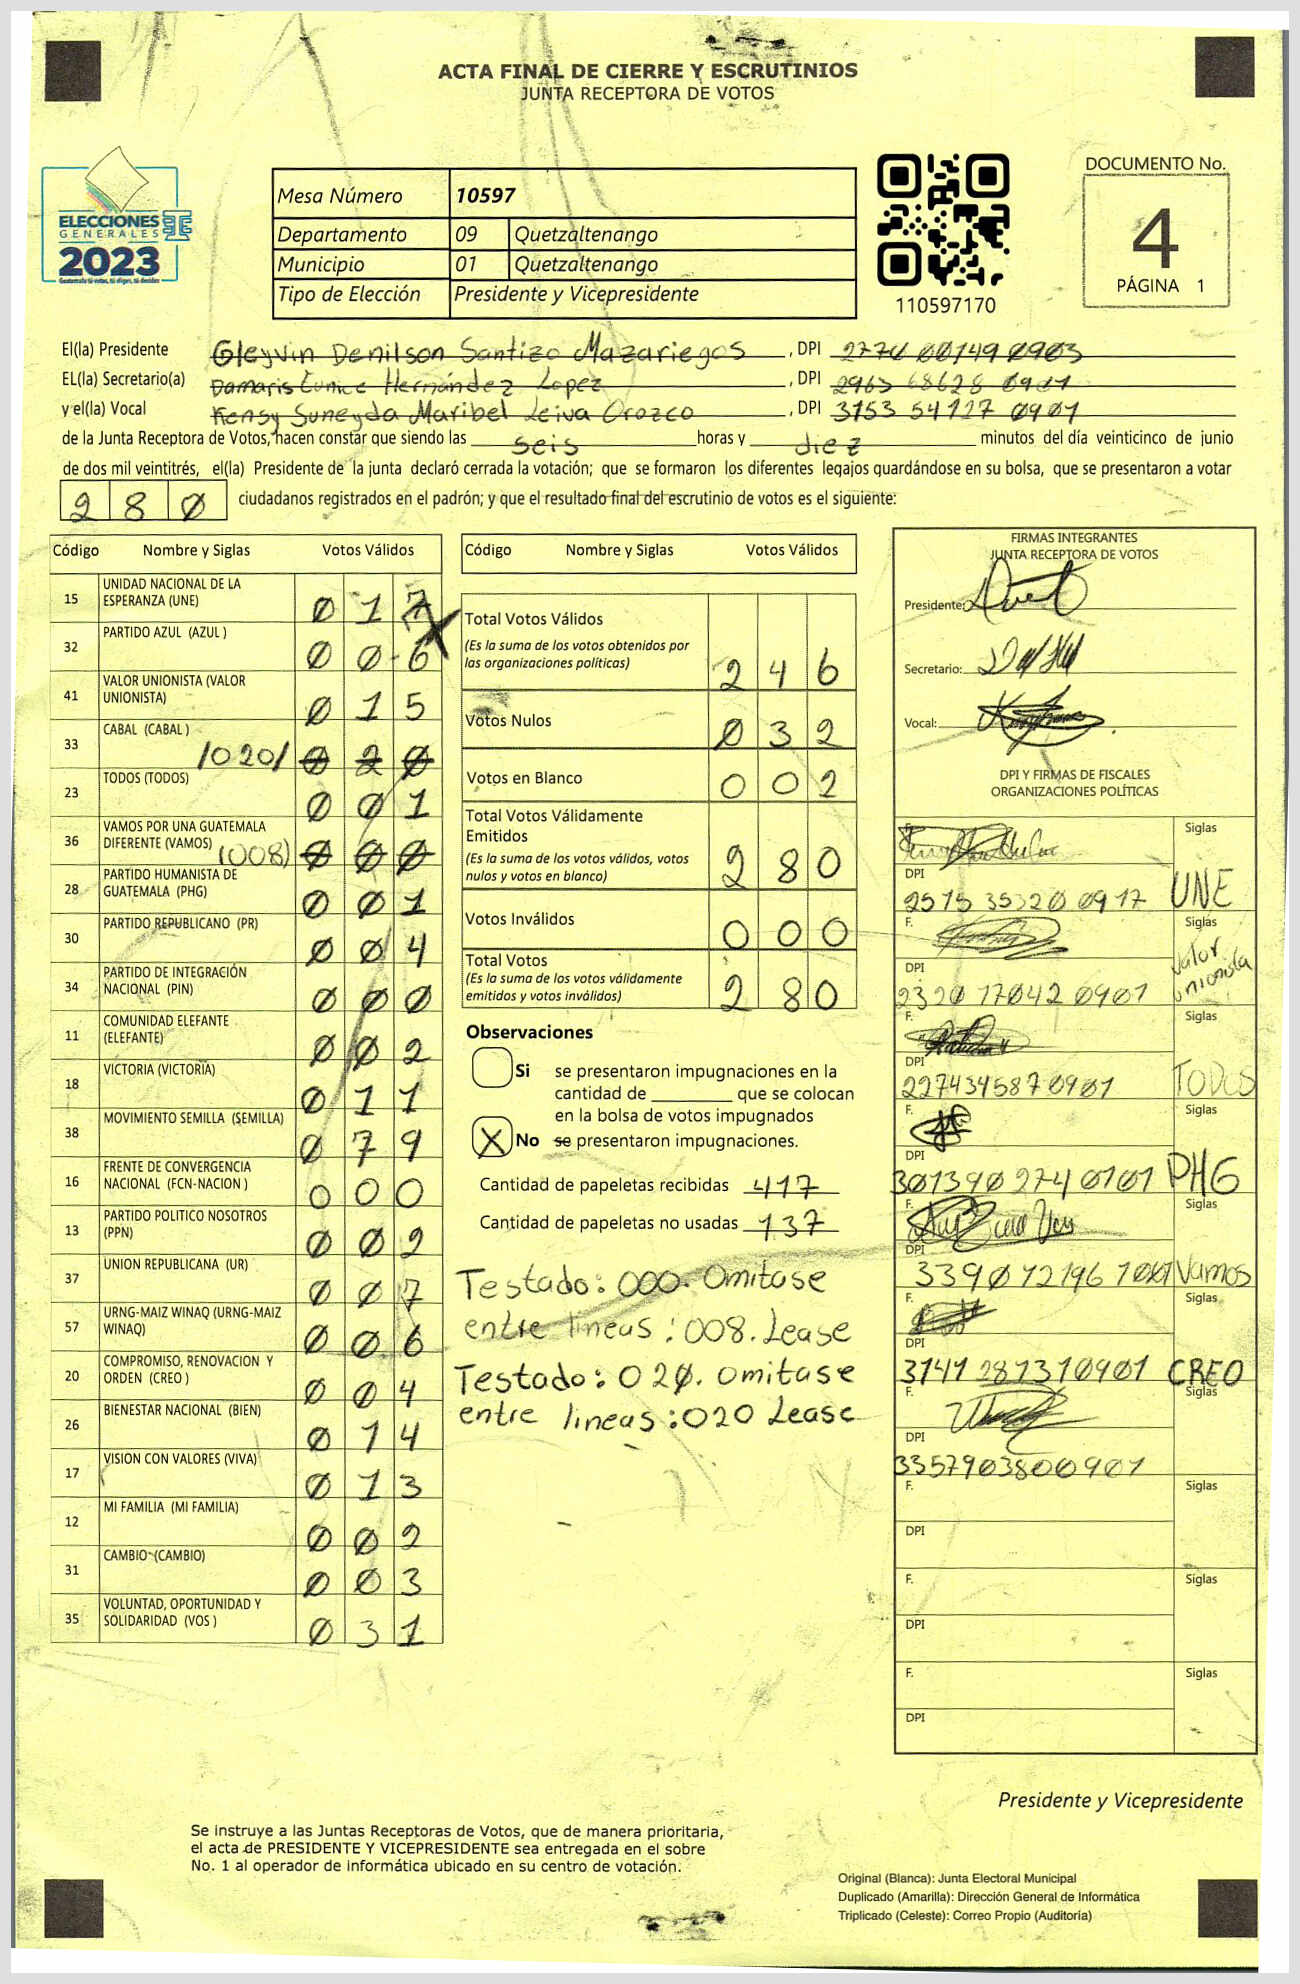 ACTA FINAL DE CIERRE Y ESCRUTINIOS
JUNTA RECEPTORA DE VOTOS
ELECCIONES
GENERALES
2023
Mesa Número 10597
Departamento 09 Quetzaltenango
Municipio 01 Quetzaltenango
Tipo de Elección Presidente y Vicepresidente
110597170
DOCUMENTO No.
4
PÁGINA 1
El(la) Presidente Gleyvin Denilson Santizo Mazariegos, DPI
EL(la) Secretario(a) Damaris Eunice Hernández Lopez, DPI 2963 68628 0901
y el(la) Vocal Kensy Suneyda Maribel Leiva Orozco, DPI 3153 54127 0901
de la Junta Receptora de Votos, hacen constar que siendo las seis horas y diez minutos del día veinticinco de junio
de dos mil veintitrés, el(la) Presidente de la junta declaró cerrada la votación; que se formaron los diferentes legajos guardándose en su bolsa, que se presentaron a votar
280 ciudadanos registrados en el padrón; y que el resultado final del escrutinio de votos es el siguiente:
Código Nombre y Siglas Votos Válidos
15 UNIDAD NACIONAL DE LA
ESPERANZA (UNE) 017
32 PARTIDO AZUL (AZUL ) 006
41 VALOR UNIONISTA (VALOR
UNIONISTA) 015
33 CABAL (CABAL ) /020/ 020
23 TODOS (TODOS) 001
36 VAMOS POR UNA GUATEMALA
DIFERENTE (VAMOS) (008) 000
28 PARTIDO HUMANISTA DE
GUATEMALA (PHG) 001
30 PARTIDO REPUBLICANO (PR) 004
34 PARTIDO DE INTEGRACIÓN
NACIONAL (PIN) 000
11 COMUNIDAD ELEFANTE
(ELEFANTE) 002
18 VICTORIA (VICTORIA) 011
38 MOVIMIENTO SEMILLA (SEMILLA) 079
16 FRENTE DE CONVERGENCIA
NACIONAL (FCN-NACION ) 000
13 PARTIDO POLITICO NOSOTROS
(PPN) 002
37 UNION REPUBLICANA (UR) 007
57 URNG-MAIZ WINAQ (URNG-MAIZ
WINAQ) 006
20 COMPROMISO, RENOVACION Y
ORDEN (CREO ) 004
26 BIENESTAR NACIONAL (BIEN) 014
17 VISION CON VALORES (VIVA) 013
12 MI FAMILIA (MI FAMILIA) 002
31 CAMBIO (CAMBIO) 003
35 VOLUNTAD, OPORTUNIDAD Y
SOLIDARIDAD (VOS ) 031
Código Nombre y Siglas Votos Válidos
Total Votos Válidos
(Es la suma de los votos obtenidos por
las organizaciones políticas) 246
Votos Nulos 032
Votos en Blanco 002
Total Votos Válidamente
Emitidos
(Es la suma de los votos válidos, votos
nulos y votos en blanco) 280
Votos Inválidos 000
Total Votos
(Es la suma de los votos válidamente
emitidos y votos inválidos) 280
Observaciones
Si se presentaron impugnaciones en la
cantidad de ________ que se colocan
en la bolsa de votos impugnados
X No se presentaron impugnaciones.
Cantidad de papeletas recibidas 417
Cantidad de papeletas no usadas 137
Testado: 000. Omitase
entre lineas: 008. Lease
Testado: 020. Omitase
entre lineas: 020 Lease
FIRMAS INTEGRANTES
JUNTA RECEPTORA DE VOTOS
Presidente:
Secretario:
Vocal:
DPI Y FIRMAS DE FISCALES
ORGANIZACIONES POLÍTICAS
F. Siglas
DPI
2575 35320 0917 UNE
F. Siglas
DPI Valor
2320 17042 0901 unionista
F. Siglas
DPI
2274345870901 TODOS
F. Siglas
DPI
301390 2740101 PHG
F. Siglas
DPI
Vamos
F. Siglas
DPI
3141 287310901 CREO
F. Siglas
DPI
3357903800901
F. Siglas
DPI
F. Siglas
DPI
F. Siglas
DPI
Presidente y Vicepresidente
Se instruye a las Juntas Receptoras de Votos, que de manera prioritaria,
el acta de PRESIDENTE Y VICEPRESIDENTE sea entregada en el sobre
No. 1 al operador de informática ubicado en su centro de votación.
Original (Blanca): Junta Electoral Municipal
Duplicado (Amarilla): Dirección General de Informática
Triplicado (Celeste): Correo Propio (Auditoría)